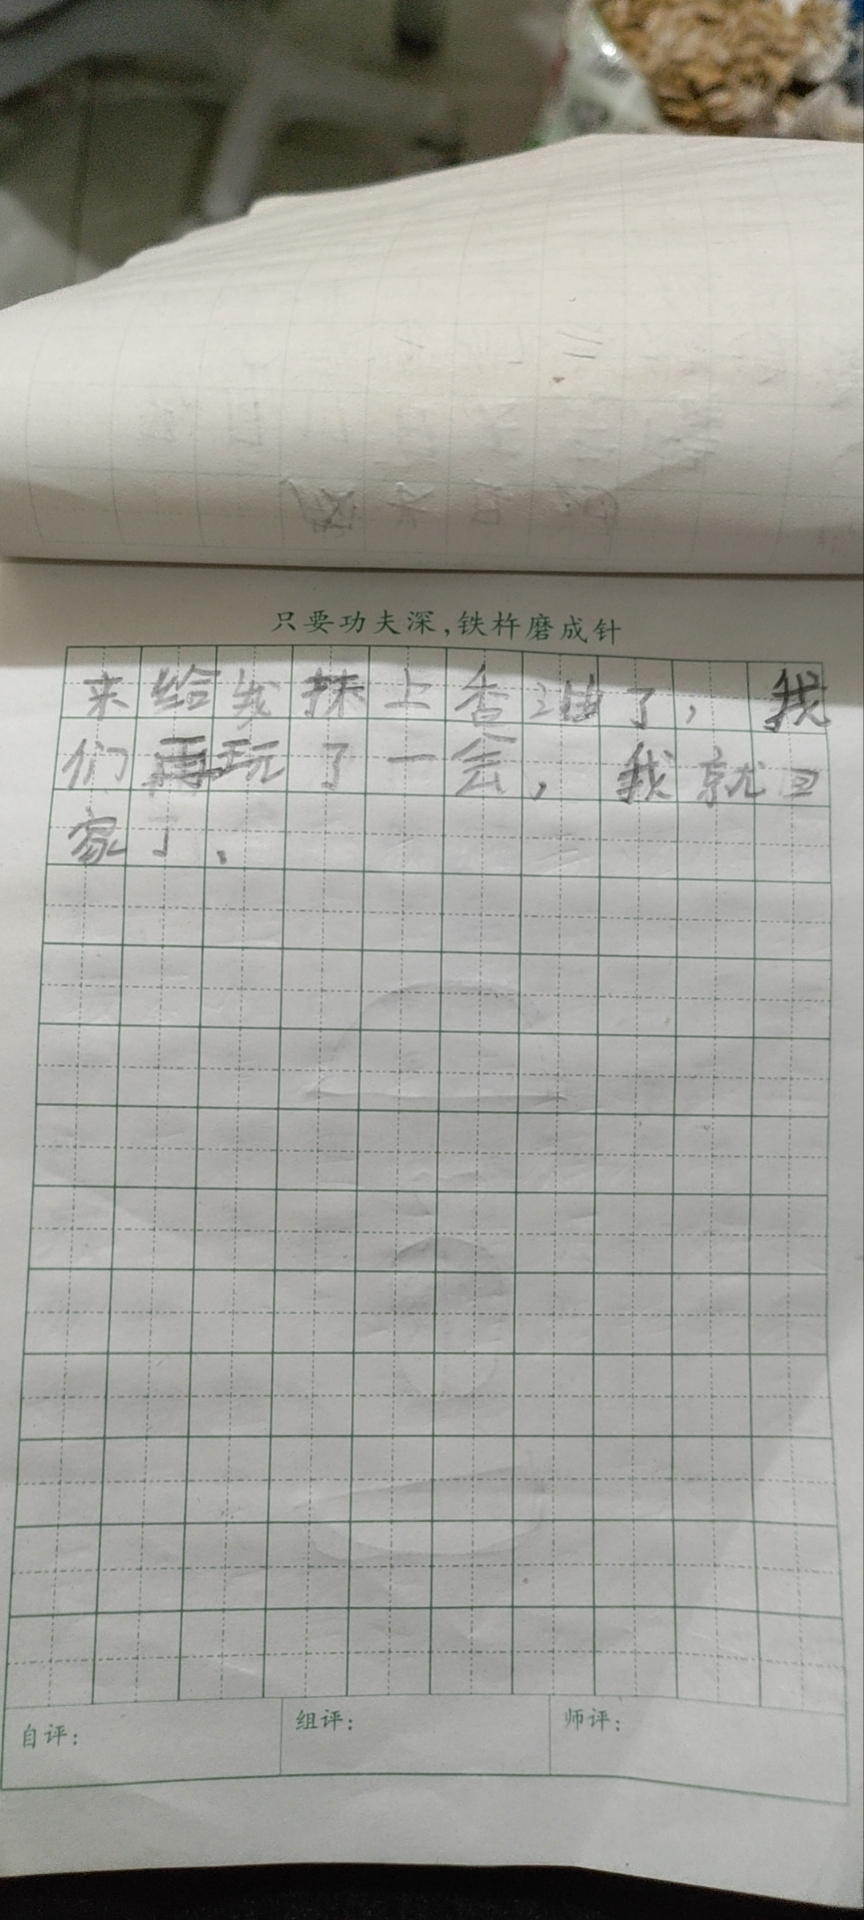 只要功夫深,铁杵磨成针
来给我抹上香油了,我
们再玩了一会,我就回
家了.
自评:
组评:
师评: